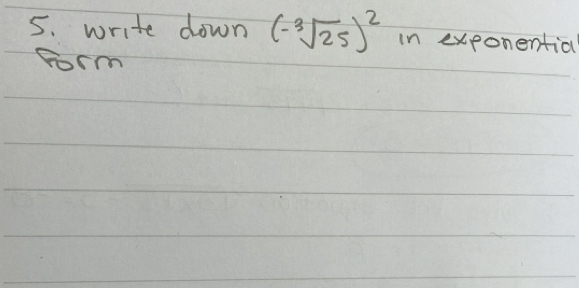 5. write down (-∛25)² in exponential
form